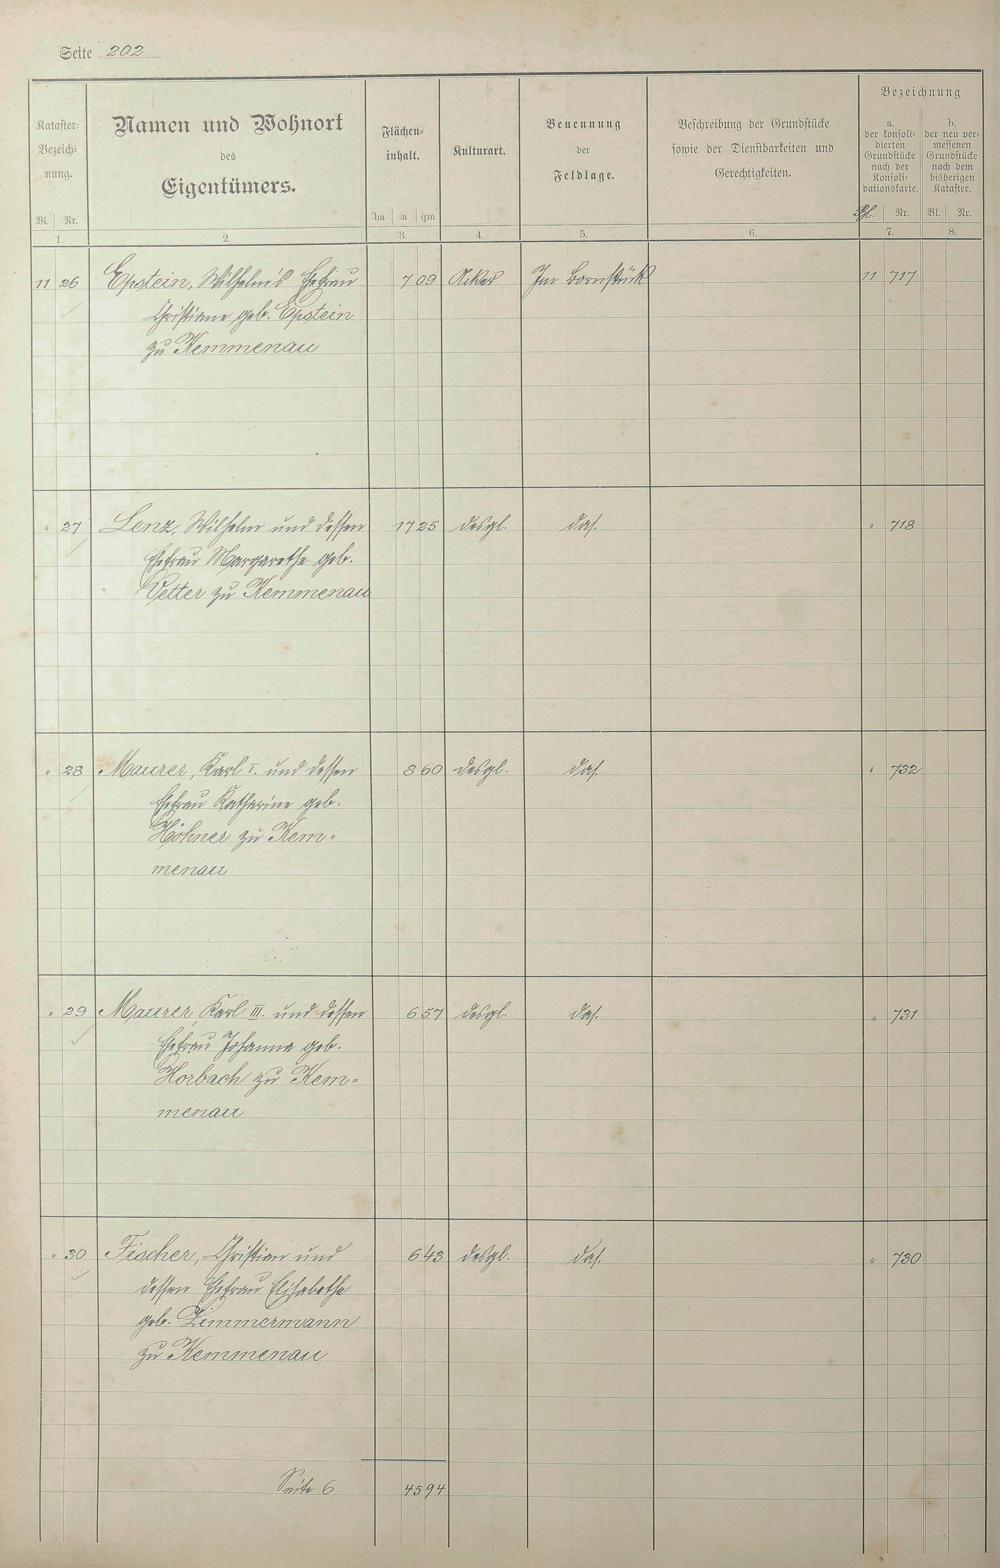 Seite 202
Kataster-
Bezeich-
nung.
Bl. Nr.
Namen und Wohnort
des
Eigentümers.
Flächen-
inhalt.
ha a qm
Kulturart.
Benennung
der
Feldlage.
Beschreibung der Grundstücke
sowie der Dienstbarkeiten und
Gerechtigkeiten.
Bezeichnung
a.
der konsoli-
dierten
Grundstücke
nach der
Konsoli-
dationskarte.
Bl. Nr.
b.
der neu ver-
messenen
Grundstücke
nach dem
bisherigen
Kataster.
Bl. Nr.
1. 2. 3. 4. 5. 6. 7. 8.
11 26 Epstein, Wilhelm's Ehefrau 7 09 Acker Im Bornstück 11 717
Christiane geb. Epstein
zu Kemmenau
" 27 Lenz, Wilhelm und dessen 17 25 desgl. das. " 718
Ehefrau Margarethe geb.
Vetter zu Kemmenau
" 28 Maurer, Karl I. und dessen 8 60 desgl. das. " 732
Ehefrau Katharine geb.
Höhner zu Kem-
menau
" 29 Maurer, Karl III. und dessen 6 57 desgl. das. " 731
Ehefrau Johanna geb.
Horbach zu Kem-
menau
" 30 Fischer, Christian und 6 43 desgl. das. " 730
dessen Ehefrau Elisabethe
geb. Zimmermann
zu Kemmenau
Seite 6 45 94